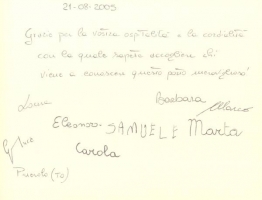 21-08-2005
Grazie per la vostra ospitalità e la cordialità
con la quale sapete accogliere chi
viene a conoscere questo posto meraviglioso!
Barbara
Marco
Eleonora SAMUELE Marta
Carola
Pinerolo (TO)